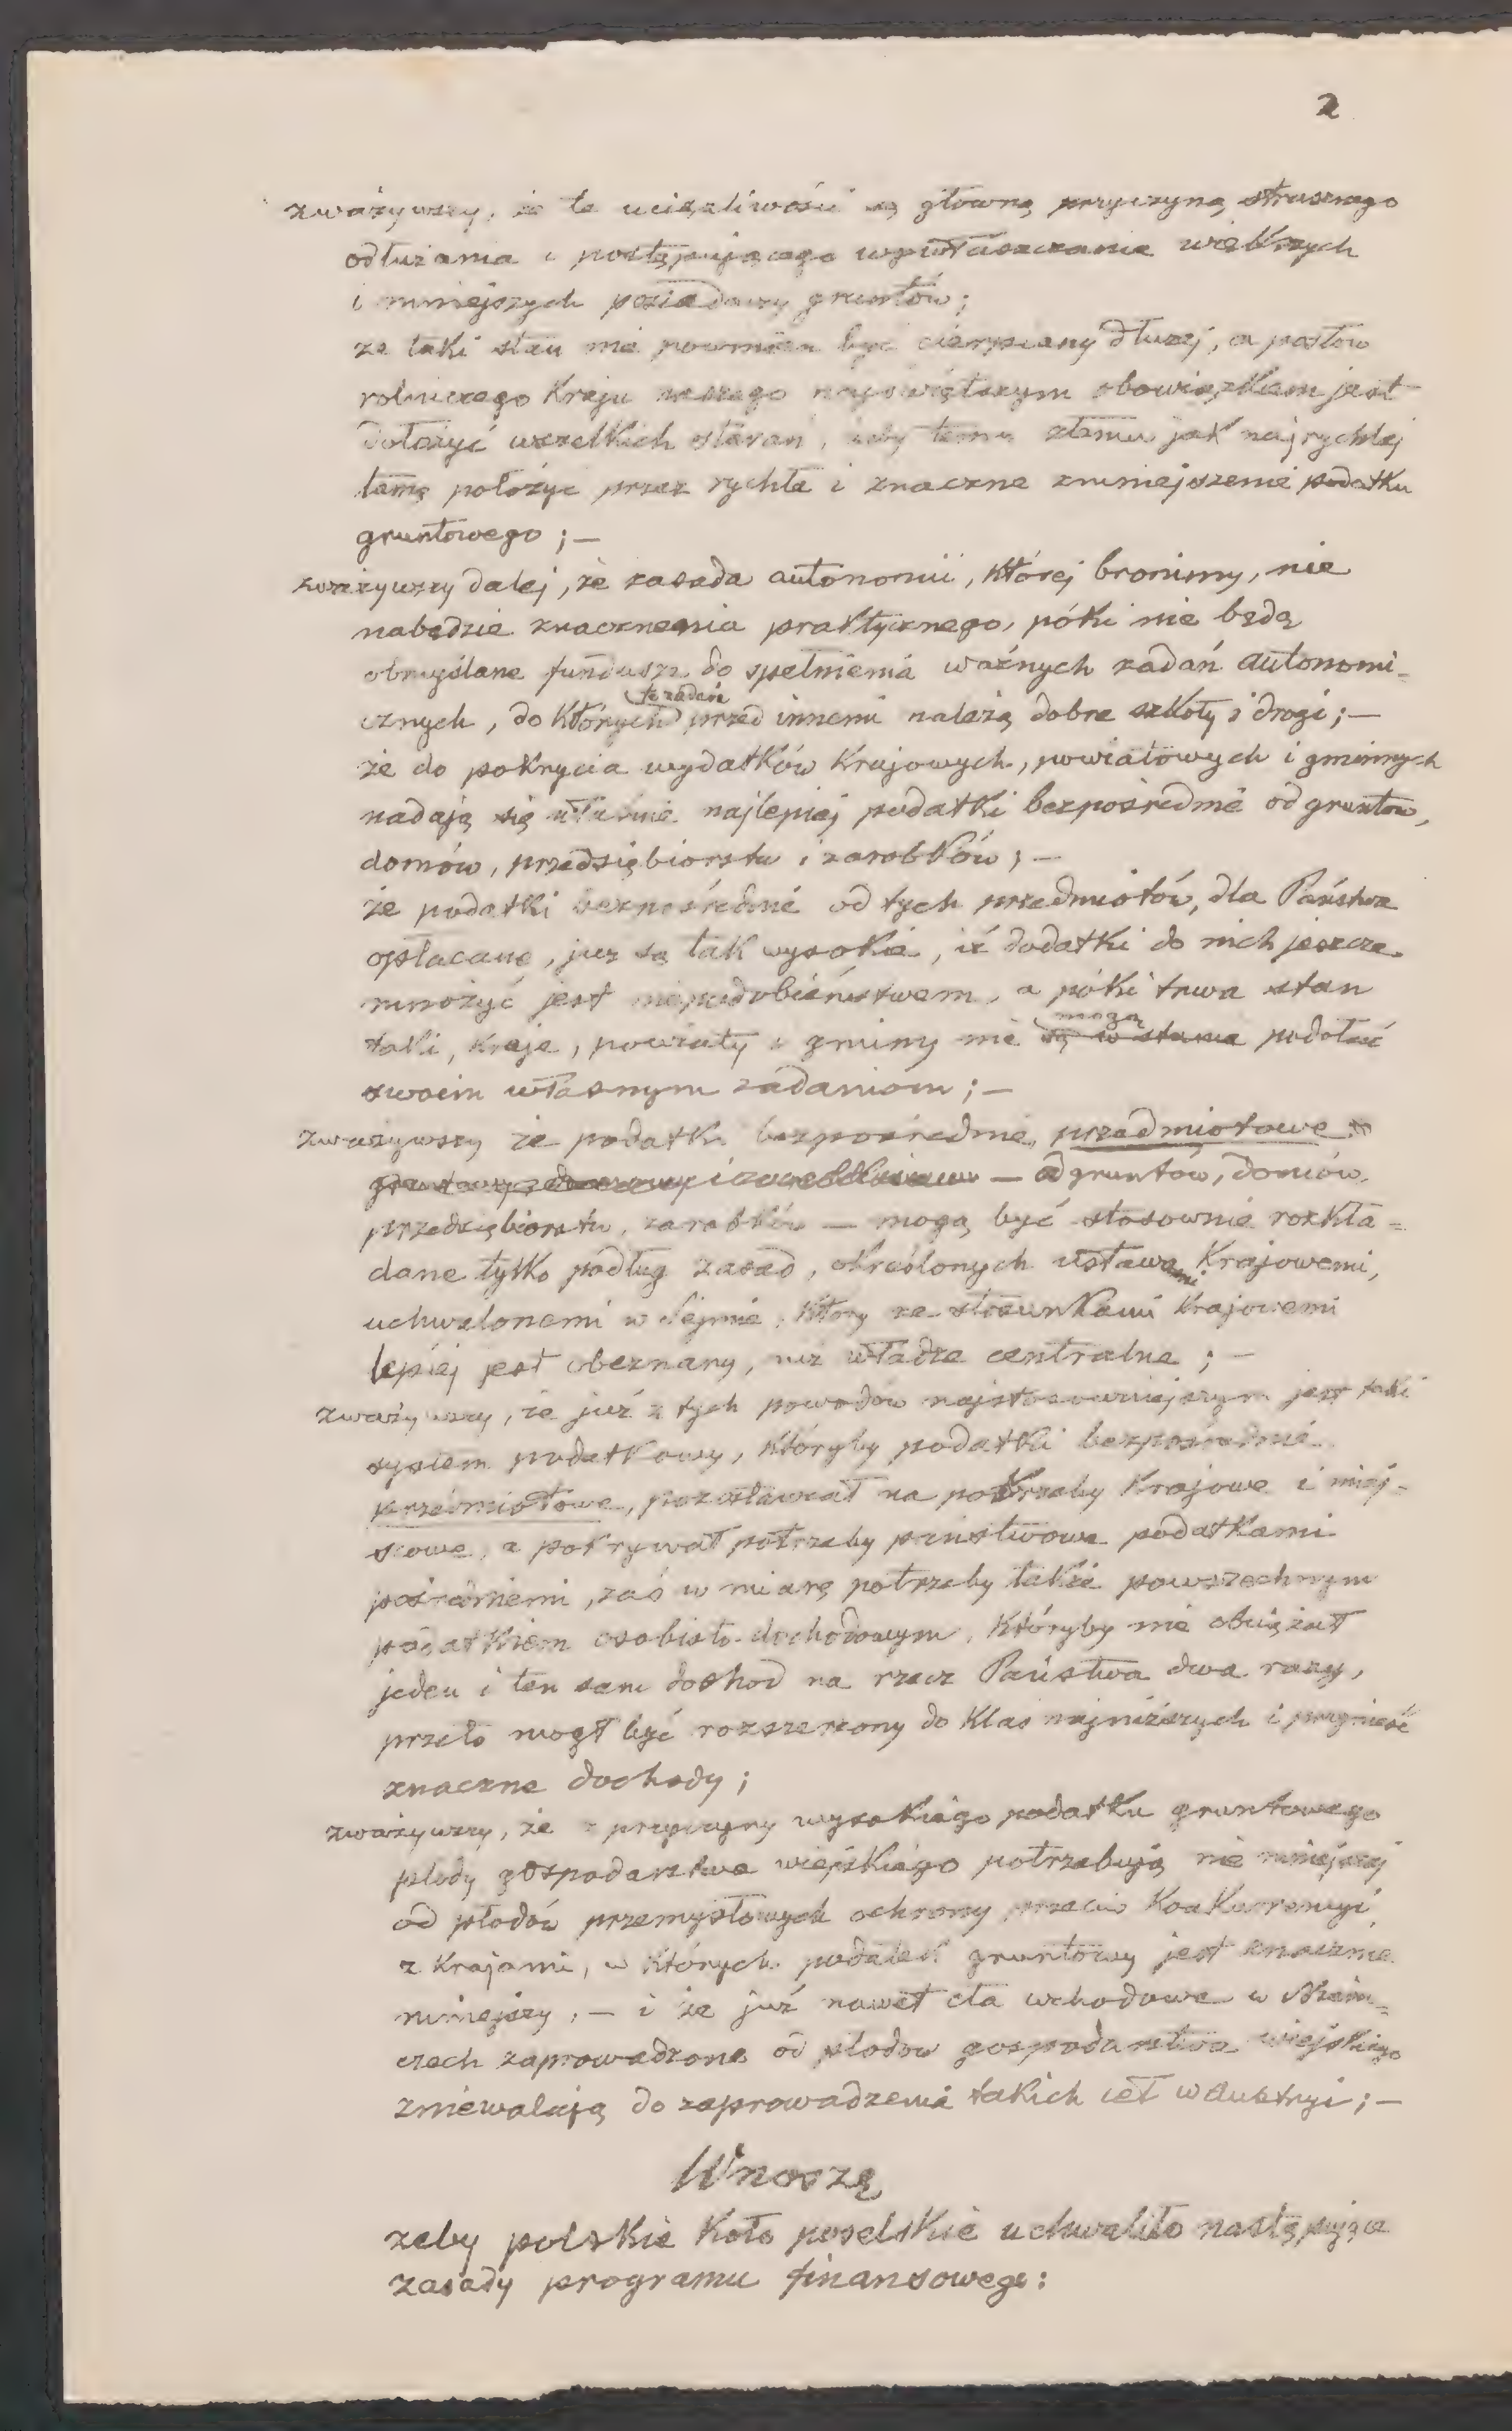 2
zważywszy, że te uciążliwości są główną przyczyną strasznego
odłużania i postępującego wywłaszczania większych
i mniejszych posiadaczy gruntów;
że taki stan nie powinien być cierpiany dłużej, a posłów
rolniczego Kraju naszego najświętszym obowiązkiem jest
dołożyć wszelkich starań, żeby temu złemu jak najrychlej
tamę położyć przez rychłe i znaczne zmniejszenie podatku
gruntowego; —
zważywszy dalej, że zasada autonomii, której bronimy, nie
nabędzie znaczenia praktycznego, póki nie będą
obmyślane fundusze do spełnienia ważnych zadań autonomi-
tych zadań
cznych, do których przed innemi należą dobre szkoły i drogi; —
że do pokrycia wydatków Krajowych, powiatowych i gminnych
nadają się właśnie najlepiej podatki bezpośrednie od gruntów,
domów, przedsiębiorstw i zarobków; —
że podatki bezpośrednie od tych przedmiotów, dla Państwa
opłacane, już są tak wysokie, iż dodatki do nich jeszcze
mnożyć jest niepodobieństwem, a póki trwa stan
mogą
taki, kraje, powiaty i gminy nie są w stanie podołać
swoim własnym zadaniom; —
zważywszy że podatki bezpośrednie, przedmiotowe
— od gruntów, domów,
przedsiębiorstw, zarobków — mogą być stosownie rozkła-
dane tylko podług zasad, określonych ustawami Krajowemi,
uchwalonemi w Sejmie, który ze stosunkami Krajowemi
lepiej jest obeznany, niż władze centralne; —
zważywszy, że już z tych powodów najstosowniejszym jest taki
system podatkowy, któryby podatki bezpośrednie
przedmiotowe, pozostawiał na potrzeby Krajowe i miej-
scowe, a pokrywał potrzeby państwowe podatkami
pośredniemi, zaś w miarę potrzeby także powszechnym
podatkiem osobisto-dochodowym, któryby nie obciążał
jeden i ten sam dochód na rzecz Państwa dwa razy,
przeto mógł być rozszerzony do Klas najniższych i przynieść
znaczne dochody;
zważywszy, że z przyczyny wysokiego podatku gruntowego
płody gospodarstwa wiejskiego potrzebują nie mniejszej
od płodów przemysłowych ochrony przeciw Konkurencyi
z Krajami, w których podatek gruntowy jest znacznie
mniejszy, — i że już nawet cła wchodowe w Niem-
czech zaprowadzone od płodów gospodarstwa wiejskiego
zniewalają do zaprowadzenia takich ceł w Austryi; —
Wnoszę
żeby polskie Koło poselskie uchwaliło następujące
zasady programu finansowego: